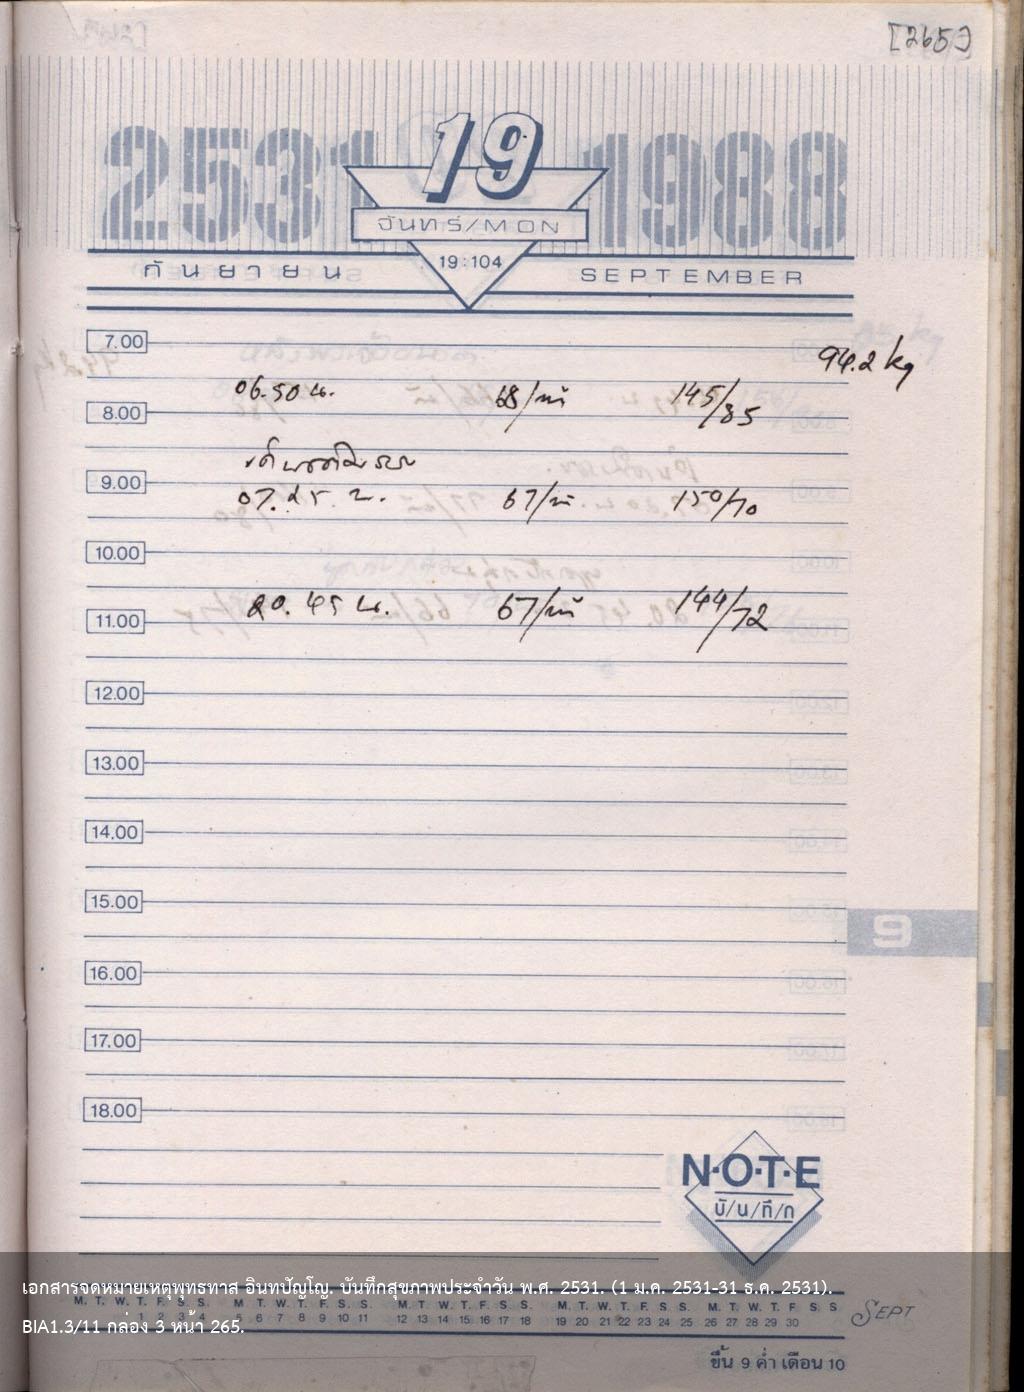 [265]
2531 19 1988
จันทร์/MON
19:104
กันยายน SEPTEMBER
7.00
94.2 kg
06.50 น. 68/นาที 145/85
8.00
9.00
07.25 น. 67/นาที 150/70
10.00
20.45 น. 67/นาที 144/72
11.00
12.00
13.00
14.00
15.00
9
16.00
17.00
18.00
N·O·T·E
บั/น/ทึ/ก
เอกสารจดหมายเหตุพุทธทาส อินทปัญโญ. บันทึกสุขภาพประจำวัน พ.ศ. 2531. (1 ม.ค. 2531-31 ธ.ค. 2531).
M. T. W. T. F. S. S. M. T. W. T. F. S. S. M. T. W. T. F. S. S. M. T. W. T. F. S. S. M. T. W. T. F S S
1 2 3 4 5 6 7 8 9 10 11 12 13 14 15 16 17 18 19 20 21 22 23 24 25 26 27 28 29 30
SEPT
BIA1.3/11 กล่อง 3 หน้า 265.
ขึ้น 9 ค่ำ เดือน 10